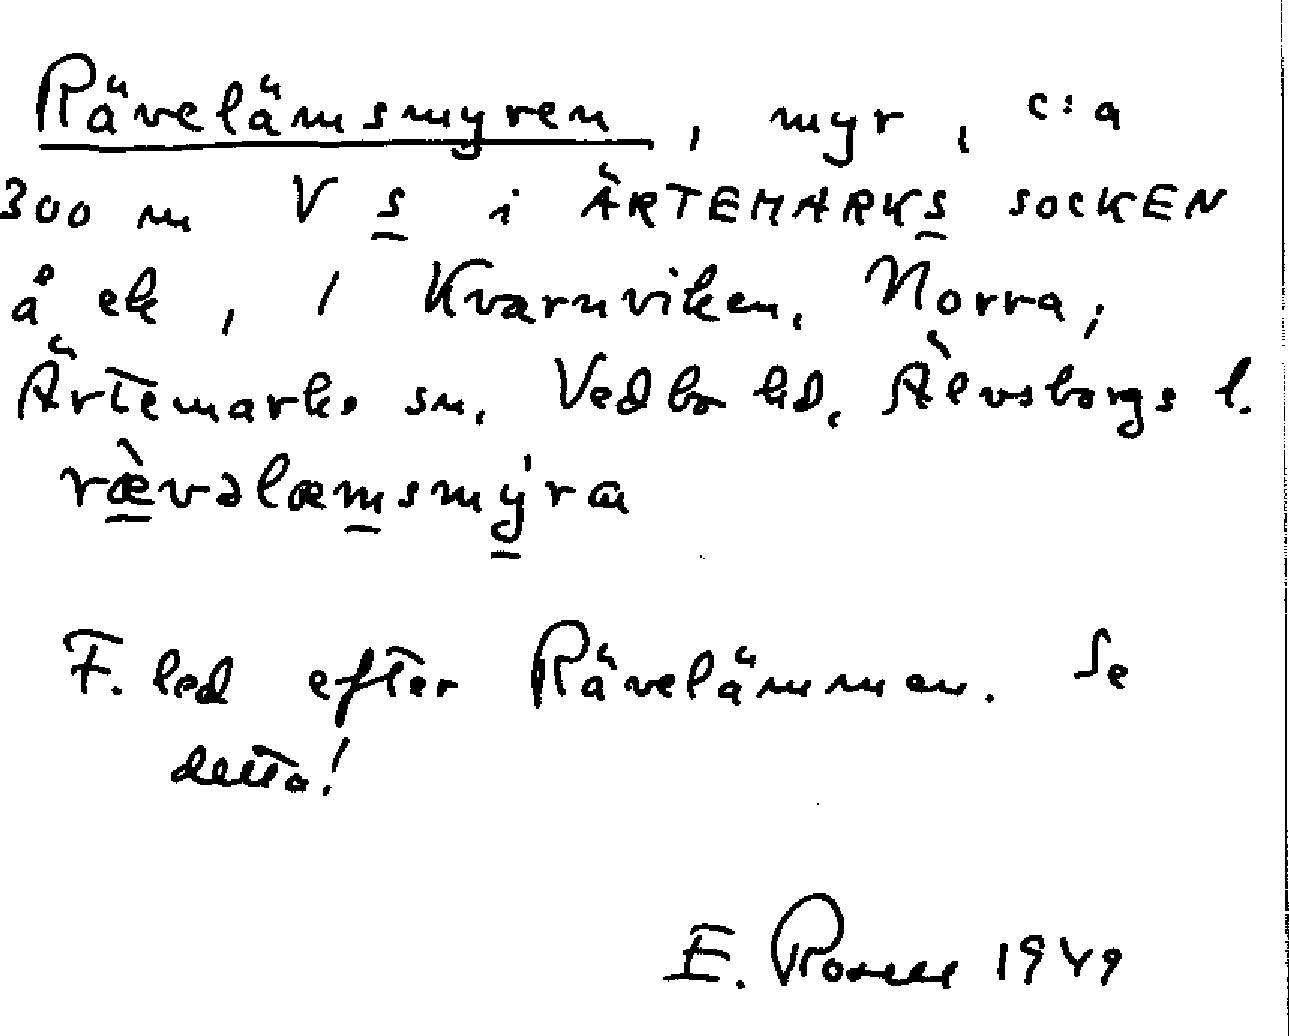 Rävelämsmyren, myr, c:a
300 m V s i ÄRTEMARKS SOCKEN
å ek, / Kvarnviken, Norra,
Ärtemarks sn. Vedbo hd, Älvsborgs l.
rævəlæmsmýra
F. led efter Rävelämman. Se
detta!
E. Rosell 1949